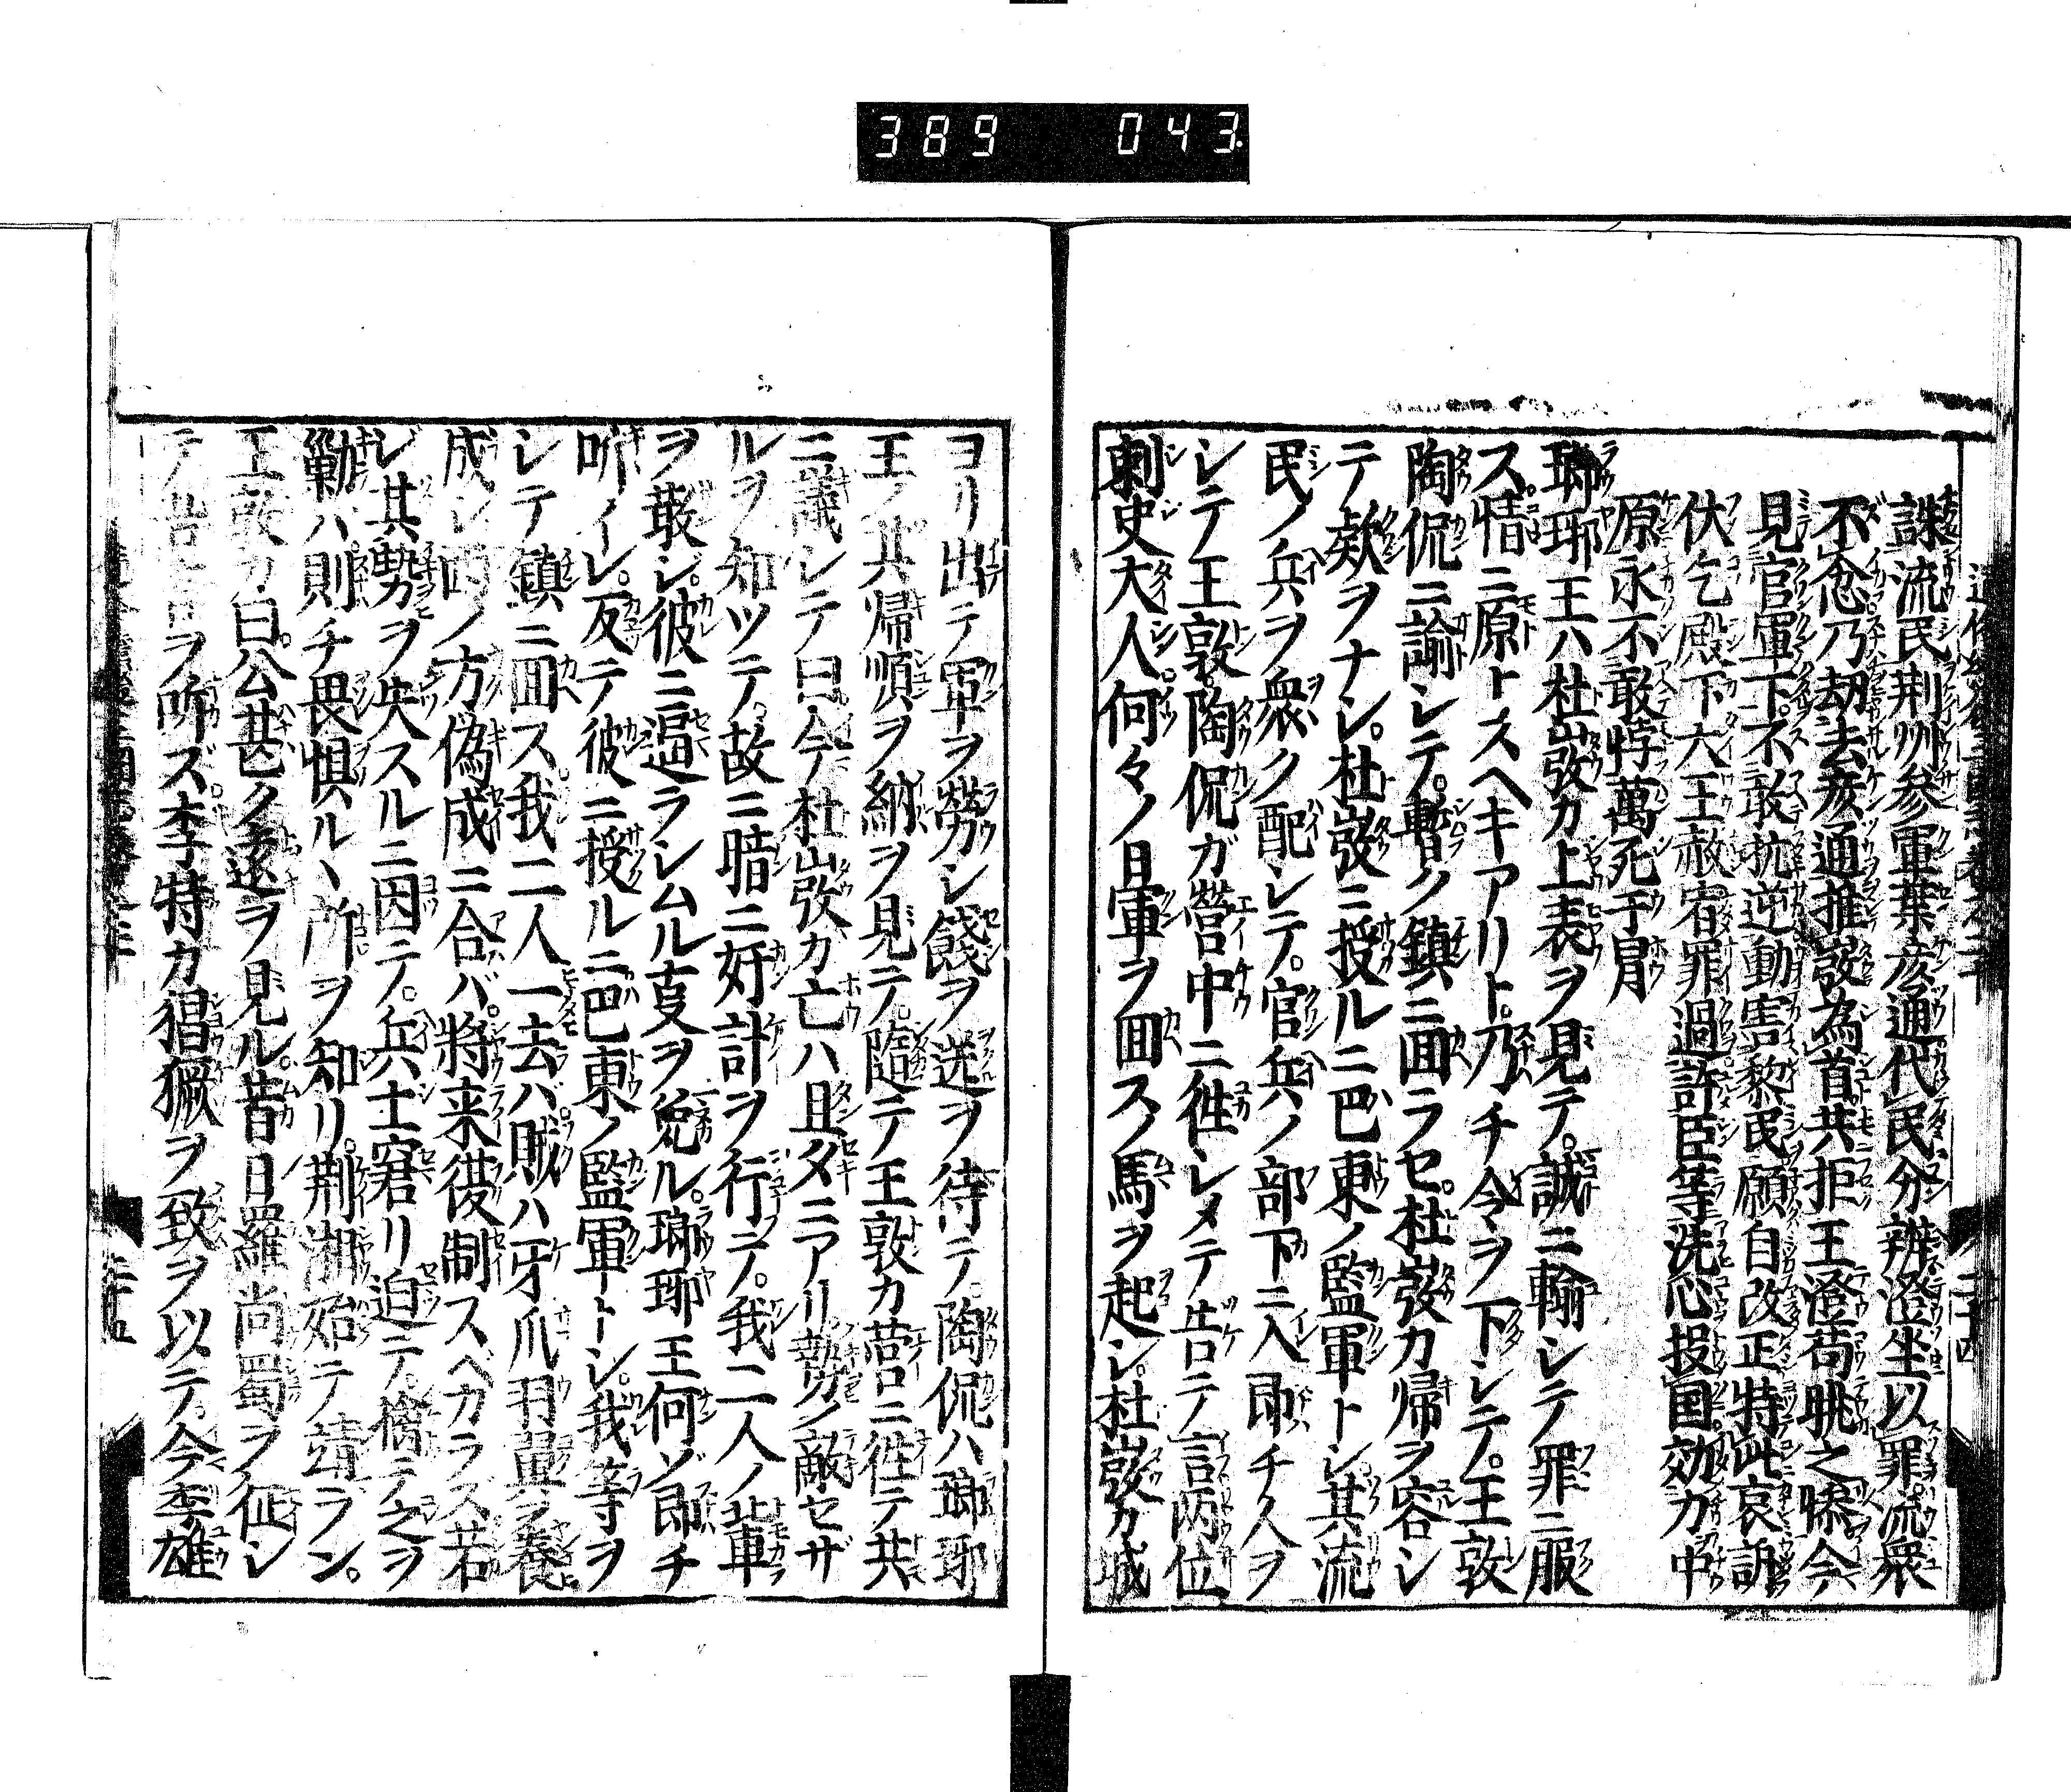 389 043
誅流民荆州参軍葉彦通代民分辨澄坐以罪流衆
不念乃劫去彦通推弢為首共拒王澄苟眺之憯今
見官軍下不敢抗逆動害黎民願自改正特此哀訴
伏乞殿下大王赦宥罪過許臣等洗心投国効力中
原永不敢悖萬死于冐
瑯琊王ハ杜弢カ上表ヲ見テ。誠ニ輸シテ罪ニ服
ス情ニ原トスヘキアリト。乃チ令ヲ下シテ。王敦
陶侃ニ諭シテ。暫ク鎮ニ囬ラセ。杜弢カ帰ヲ容シ
テ欵ヲナシ。杜弢ニ授ルニ巴東ノ監軍トシ其流
民ノ兵ヲ衆ク配シテ。官兵ノ部下ニ入即チ人ヲ
シテ王敦。陶侃ガ營中ニ徃シメテ告テ言両位
刺史大人。何々ノ日軍ヲ囬ス馬ヲ起シ。杜弢カ城
ヨリ出テ軍ヲ勞シ餞ヲ送ヲ待テ陶侃ハ瑯琊
王ノ其帰順ヲ納ヲ見テ。隨テ王敦カ營ニ徃テ共
ニ議シテ曰。今杜弢カ亡ハ旦夕ニアリ。勢ノ敵セザ
ルヲ知ツテ。故ニ暗ニ奸計ヲ行テ。我二人ノ軰
ヲ散シ。彼ニ逼ラシムル支ヲ免ル。瑯琊王何ゾ即チ
听イレ。反テ彼ニ授ルニ巴東ノ監軍トシ。我等ヲ
シテ鎮ニ囬ス。我二人一去バ賊ハ牙爪羽翼ヲ養
成シ的ノ方偽成ニ合バ。將来復制スベカラス若
シ其勢ヲ失スルニ因テ。兵士窘リ迫テ。擒テ之ヲ
勦ハ則チ畏惧ルヽ所ヲ知リ。荆湘始テ靖ラン。
王敦カ曰。公甚ク遠ヲ見ル。昔日羅尚蜀ヲ征シ
テ言ヲ听ズ。李特カ猖獗ヲ致ヲ以テ。今李雄